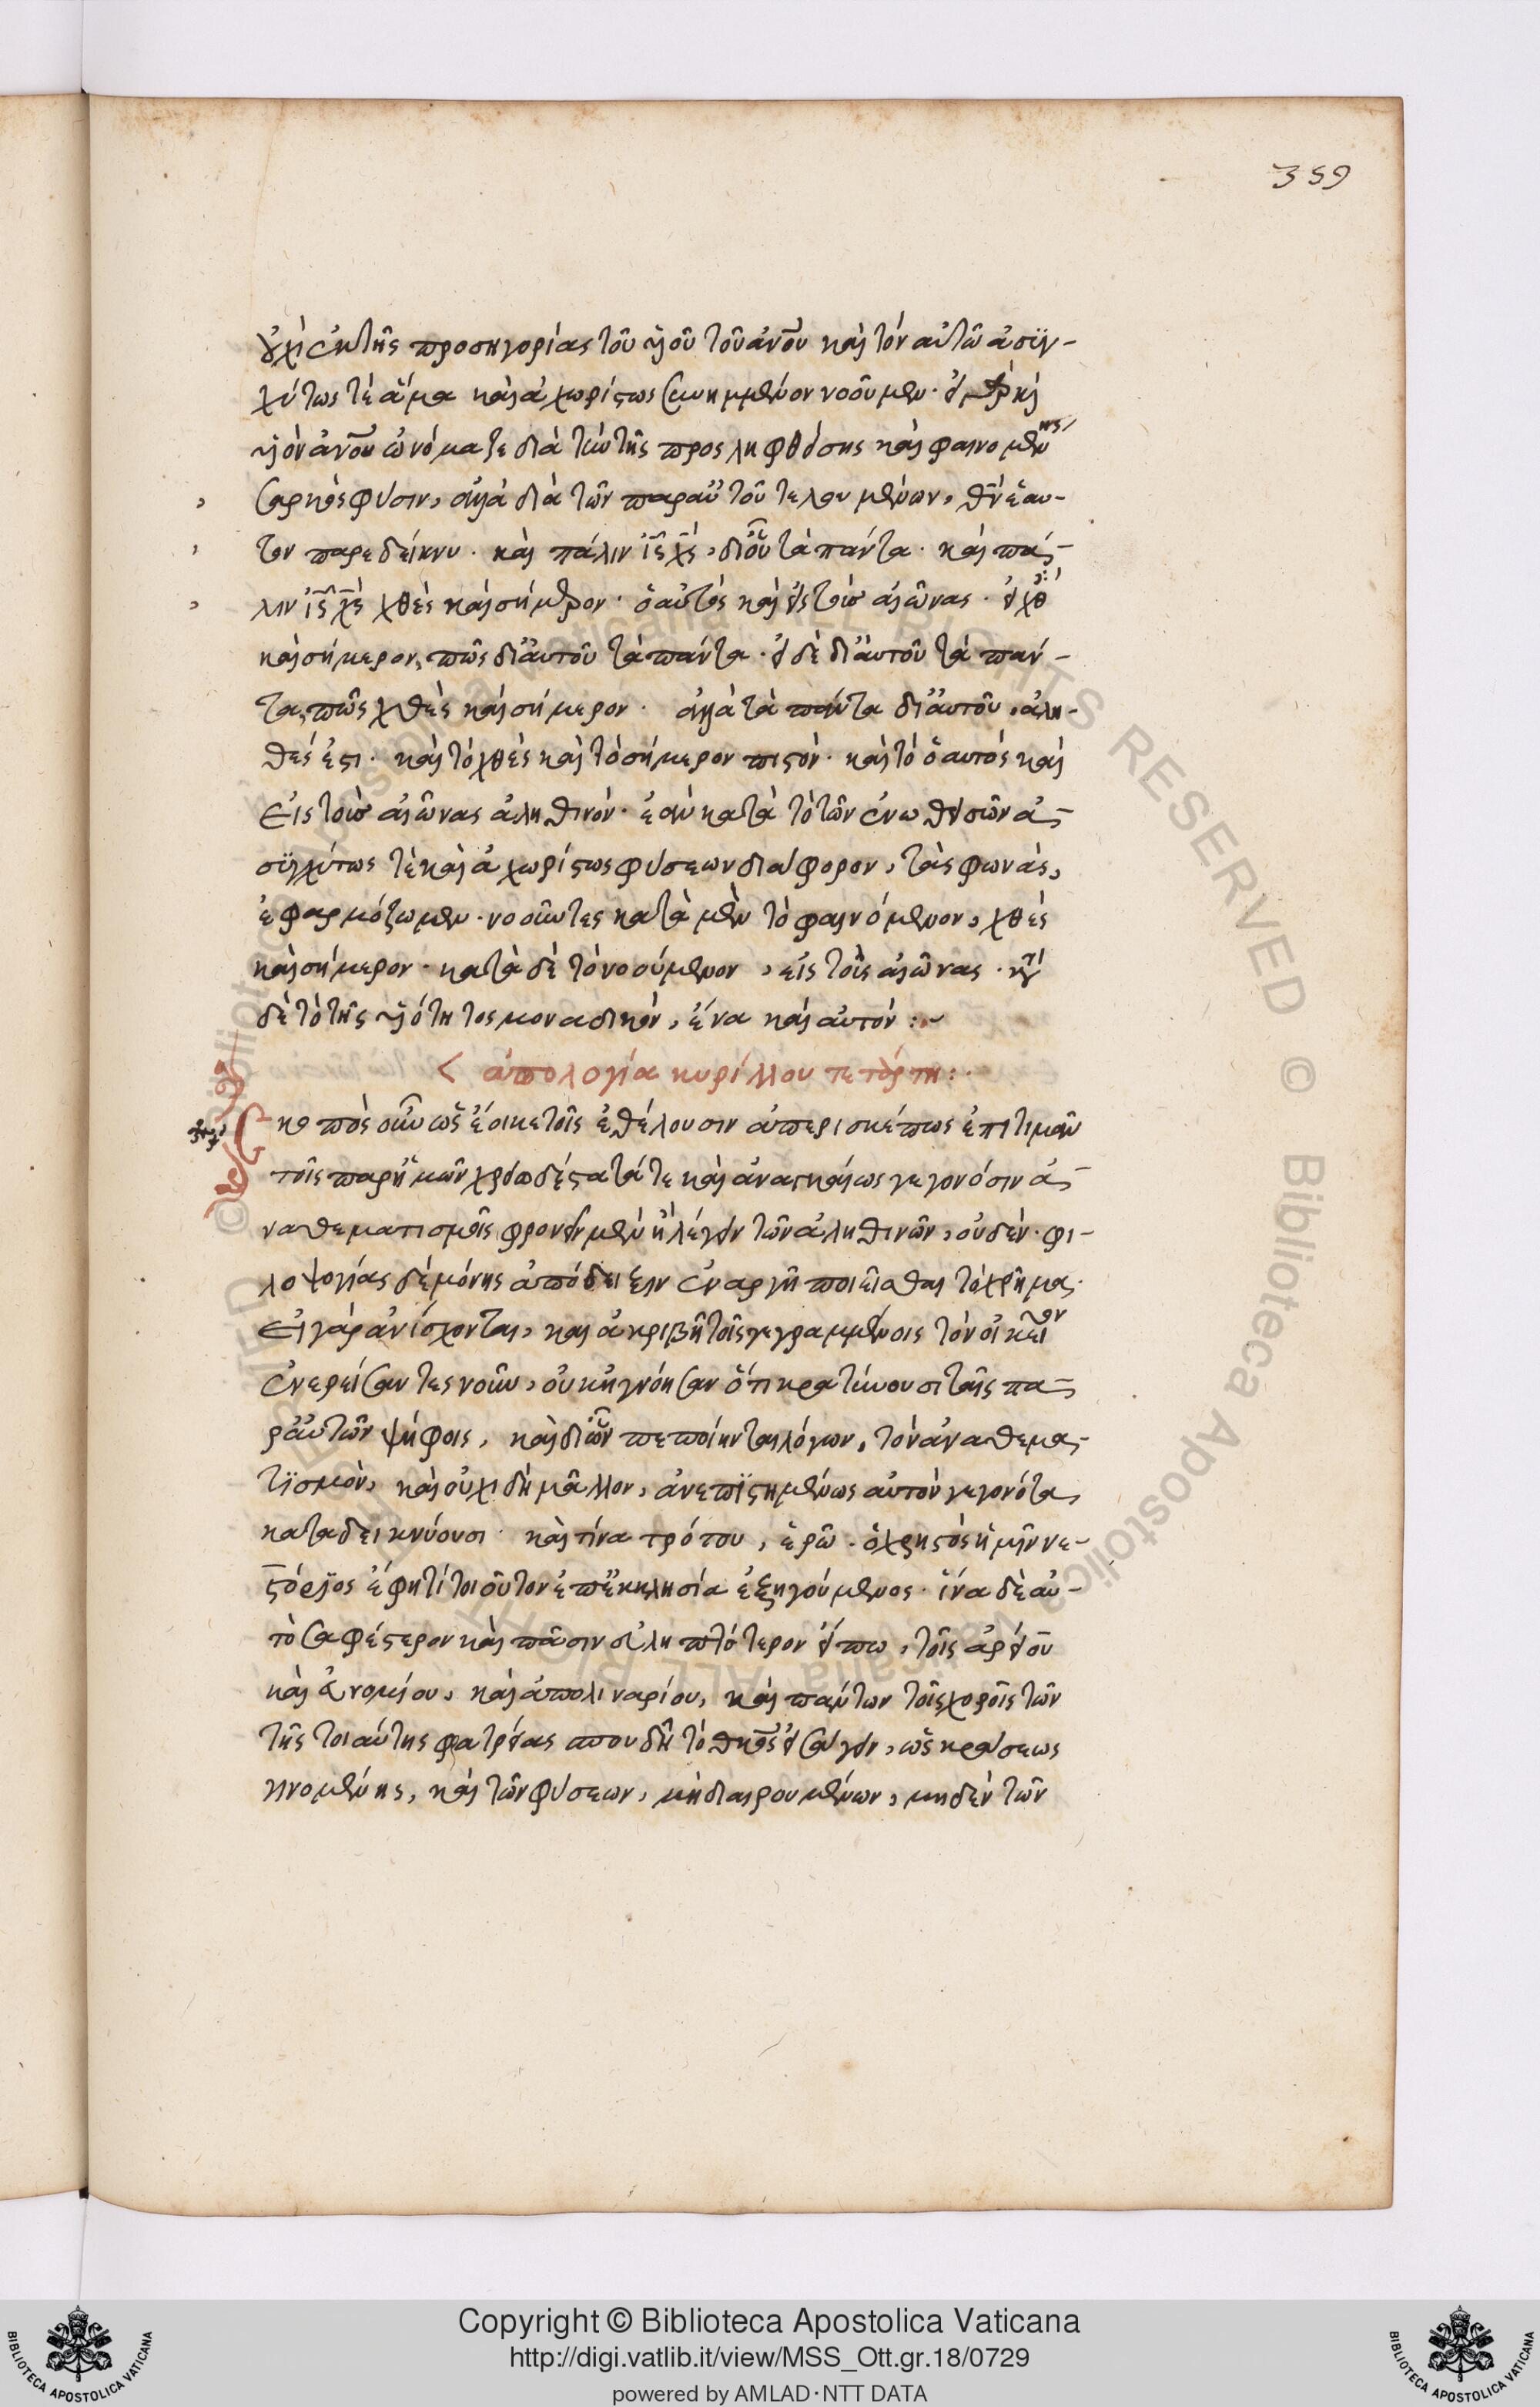 359
οὐχὶ ἐκ τῆς προσηγορίας τοῦ υἱοῦ τοῦ ἀνου καὶ τὸν αὐτῶ ἀσυγ-
χύτως τὲ ἅμα καὶ ἀχωρίστως συνημμένον νοοῦμεν. εἰ μὲν γὰρ καὶ
υἱὸν ἀνου ὠνόμαζε διὰ τὴν τῆς προσληφθείσης καὶ φαινομένης
σαρκὸς φύσιν, ἀλλὰ διὰ τῶν παρ αὐτοῦ τελουμένων, θν ἑαυ-
τον παρεδείκνυ. καὶ πάλιν ις χς, δι οὗ τὰ πάντα. καὶ πά-
λιν ις χς χθὲς καὶ σήμερον. ὁ αὐτὸς καὶ εἰς τοὺς αἰῶνας. εἰ χθὲς
καὶ σήμερον, πῶς δι αὐτοῦ τὰ πάντα. εἰ δὲ δι αὐτοῦ τὰ πάν-
τα, πῶς χθὲς καὶ σήμερον. ἀλλὰ τὰ πάντα δι αὐτοῦ, ἀλη-
θές ἐστι. καὶ τὸ χθὲς καὶ τὸ σήμερον πιστὸν. καὶ τὸ ὁ αὐτὸς καὶ
εἰς τοὺς αἰῶνας ἀληθινόν. ἐὰν κατὰ τὸ τῶν ἑνωθεισῶν ἀ-
συγχύτως τὲ καὶ ἀχωρίστως φύσεων διάφορον, τὰς φωνὰς,
ἐφαρμόζωμεν. νοοῦντες κατὰ μὲν τὸ φαινόμενον, χθὲς
καὶ σήμερον. κατὰ δὲ τὸ νοούμενον, εἰς τοὺς αἰῶνας. κατὰ
δὲ τὸ τῆς υἱότητος μοναδικὸν, ἕνα καὶ αὐτόν :~
< ἀπολογία κυρίλλου τετάρτη :.
κοπὸς οὖν ὡς ἔοικε τοῖς ἐθέλουσιν ἀπερισκέπτως ἐπιτιμᾶν
τοῖς παρ ἡμῶν χρειωδέστατά τε καὶ ἀναγκαίως γεγονόσιν ἀ-
ναθεματισμοῖς φρονεῖν μὲν ἢ λέγειν τῶν ἀληθινῶν, οὐδὲν. φι-
λοψογίας δὲ μόνης ἀπόδειξιν ἐναργῆ ποιεῖσθαι τὸ χρῆμα.
Εἰ γὰρ ἀνίσχονται, καὶ ἀκριβῆ τοῖς γεγραμμένοις τὸν οἰκεῖον
ἐνερείσαντες νοῦν, οὐκ ἠγνόησαν ὅτι κρατύνουσι ταῖς πα-
ρ αὐτῶν ψήφοις, καὶ δι ὧν πεποίηνται λόγων, τὸν ἀναθεμα-
τισμὸν, καὶ οὐχὶ δὴ μᾶλλον, ἀνεπιστημένως αὐτὸν γεγονότα,
καταδεικνύουσι. καὶ τίνα τρόπου, ἐρῶ. ὁ χρηστὸς ἡμῖν νε-
στόριος ἔφη τί τοιοῦτον ἐπ ἐκκλησία ἐξηγούμενος. ἵνα δὲ αὐ-
τὸ σαφέστερον καὶ πᾶσιν εὐληπτότερον εἴπω, τοῖς ἀρείου
καὶ εὐνομίου, καὶ ἀπολιναρίου, καὶ πάντων τοῖς χοροῖς τῶν
τῆς τοιαύτης φατρείας σπουδὴ τὸ θκος εἰσάγειν, ὡς κράσεως
γινομένης, καὶ τῶν φύσεων, μὴ διαιρουμένων, μηδὲν τῶν
Copyright © Biblioteca Apostolica Vaticana
http://digi.vatlib.it/view/MSS_Ott.gr.18/0729
powered by AMLAD·NTT DATA